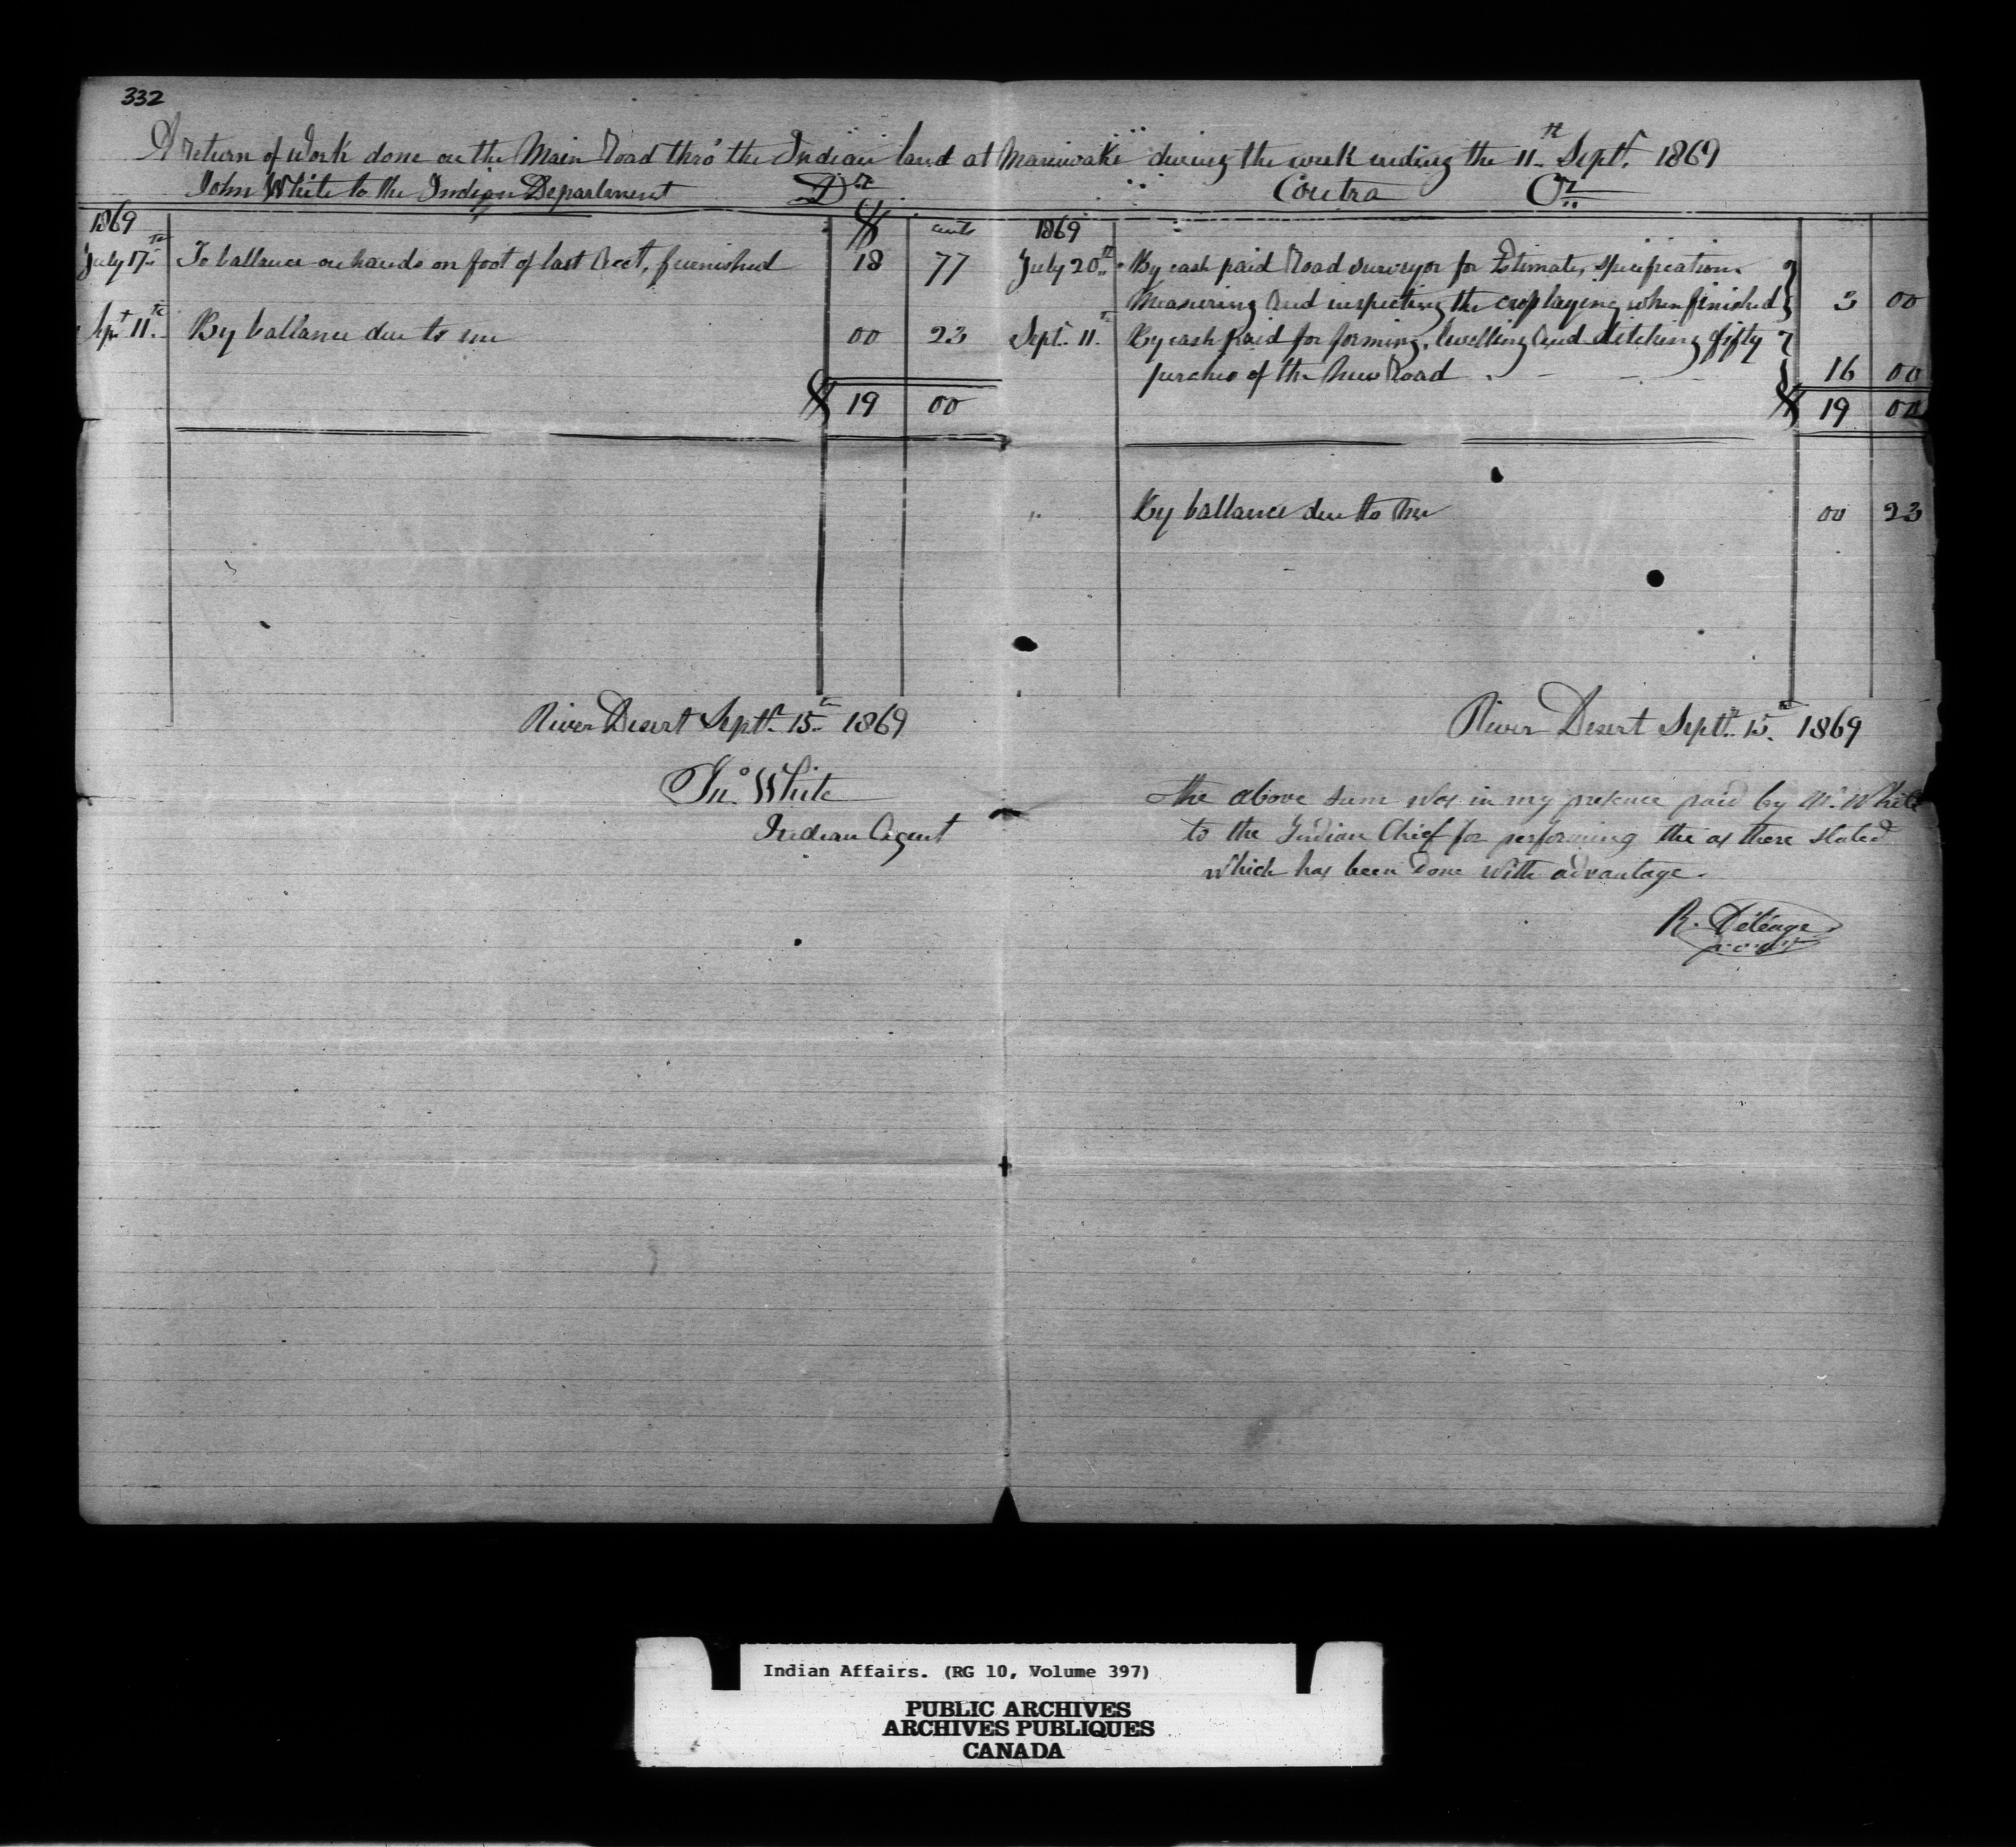 332
A return of work done on the Main Road thro' the Indian land at Maniwaki during the week ending the 11th Septr. 1869
John White to the Indian Department Dr.
Contra Cr.
1869 $ cents
July 17th To ballance on hands on foot of last Acct, furnished 18 77
Sept 11th By ballance due to me 00 23
$ 19 00
1869
July 20th By cash paid Road surveyor for Estimate, specification
Measuring and inspecting the crosslaying when finished 3 00
Sept. 11th By cash paid for forming, levelling and ditching fifty
perches of the New Road 16 00
$ 19 00
" By ballance due to me 00 23
River Desert Septr. 15th 1869
Jno. White
Indian Agent
River Desert Septr. 15th 1869
the above sum was in my presence paid by Mr. White
to the Indian Chief for performing the as there stated
which has been done with advantage.
R. Déléage
Indian Affairs. (RG 10, Volume 397)
PUBLIC ARCHIVES
ARCHIVES PUBLIQUES
CANADA